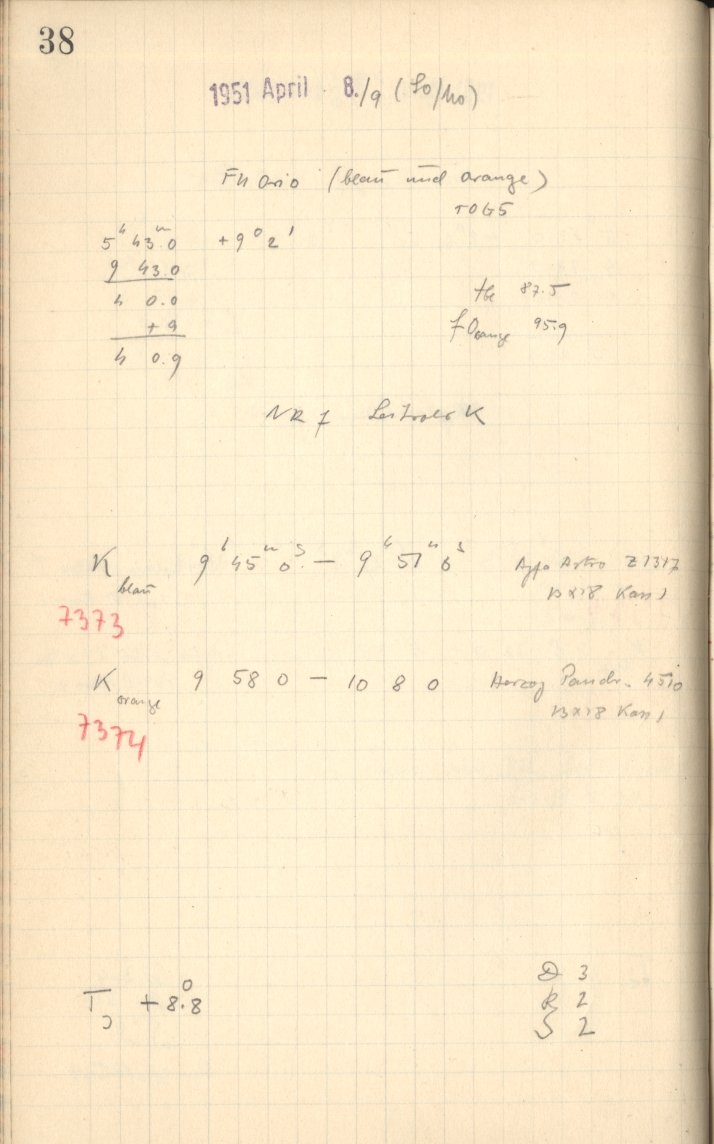 38
1951 April 8./9 (So/Mo)
FU Orio (blau und orange)
r OG5
5ʰ 43ᵐ.0 +9° 2'
9 43.0
4 0.0
+ 9
4 0.9
fbl 87.5
f Orange 95.9
NR 7 K
K blau 9ʰ 45ᵐ 0ˢ – 9ʰ 51ᵐ 0ˢ Agfa Astro Z1317
13x18 Kass 1
7373
K orange 9 58 0 – 10 8 0 Herzog 4510
13x18 Kass 1
7374
T +8°.8
D 3
R 2
S 2